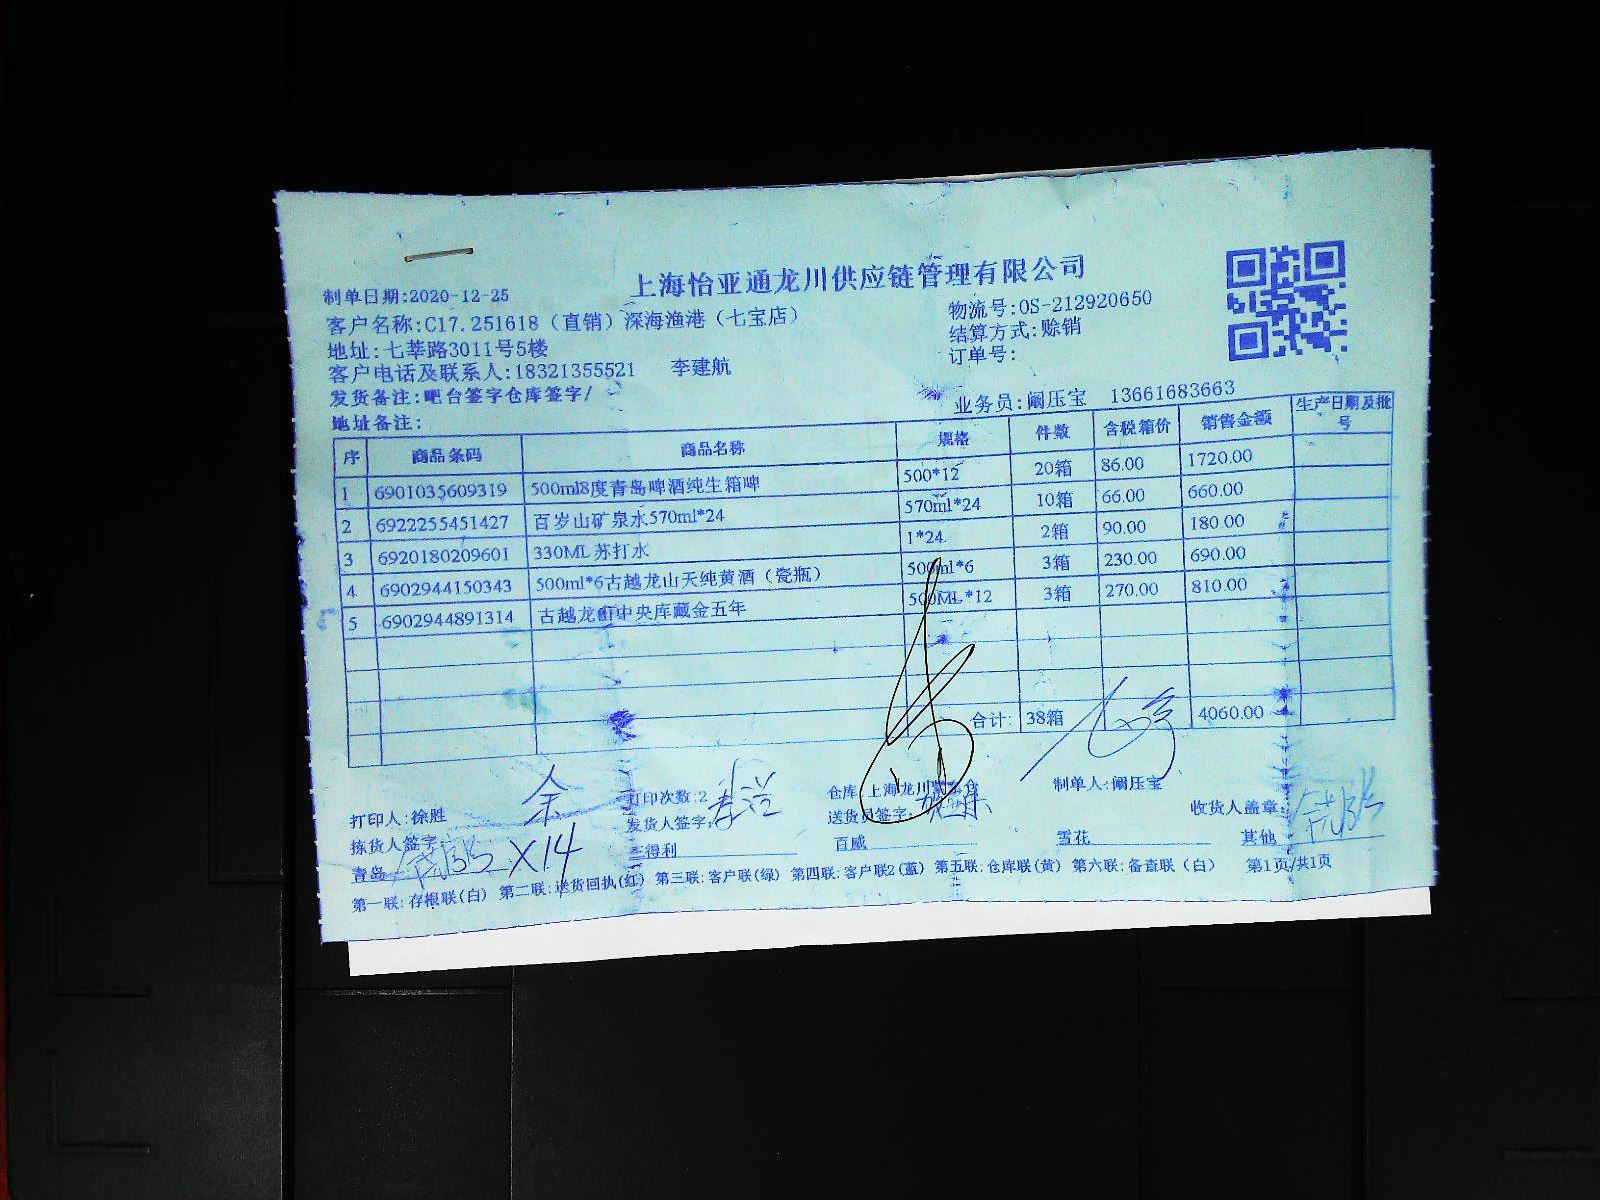 上海怡亚通龙川供应链管理有限公司
制单日期:2020-12-25
物流号:OS-212920650
客户名称:C17.251618（直销）深海渔港（七宝店）
结算方式:赊销
地址:七莘路3011号5楼
订单号:
客户电话及联系人:18321355521 李建航
发货备注:吧台签字仓库签字/
业务员:阚压宝 13661683663
地址备注:
序 商品条码 商品名称 规格 件数 含税箱价 销售金额 生产日期及批号
1 6901035609319 500ml8度青岛啤酒纯生箱啤 500*12 20箱 86.00 1720.00
2 6922255451427 百岁山矿泉水570ml*24 570ml*24 10箱 66.00 660.00
3 6920180209601 330ML 苏打水 1*24 2箱 90.00 180.00
4 6902944150343 500ml*6古越龙山天纯黄酒（瓷瓶） 500ml*6 3箱 230.00 690.00
5 6902944891314 古越龙山中央库藏金五年 500ML*12 3箱 270.00 810.00
合计: 38箱 4060.00
打印人:徐胜 打印次数:2 仓库:上海龙川 制单人:阚压宝
拣货人签字: 余 发货人签字: 送货员签字: 收货人盖章:
青岛 X14 三得利 百威 雪花 其他
第一联:存根联(白) 第二联:送货回执(红) 第三联:客户联(绿) 第四联:客户联2(蓝) 第五联:仓库联(黄) 第六联:备查联(白) 第1页/共1页